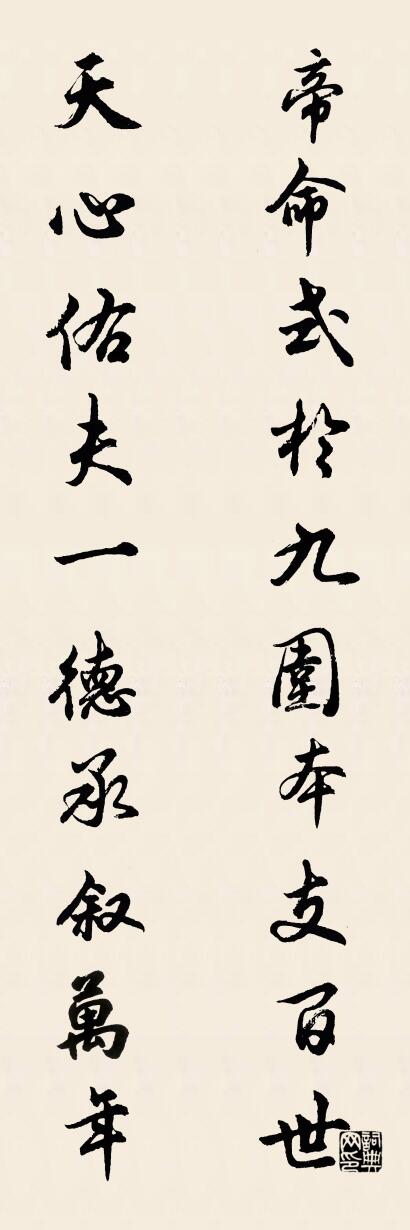 帝命式於九圍本支百世
天心佑夫一德承叙萬年
詞典网印